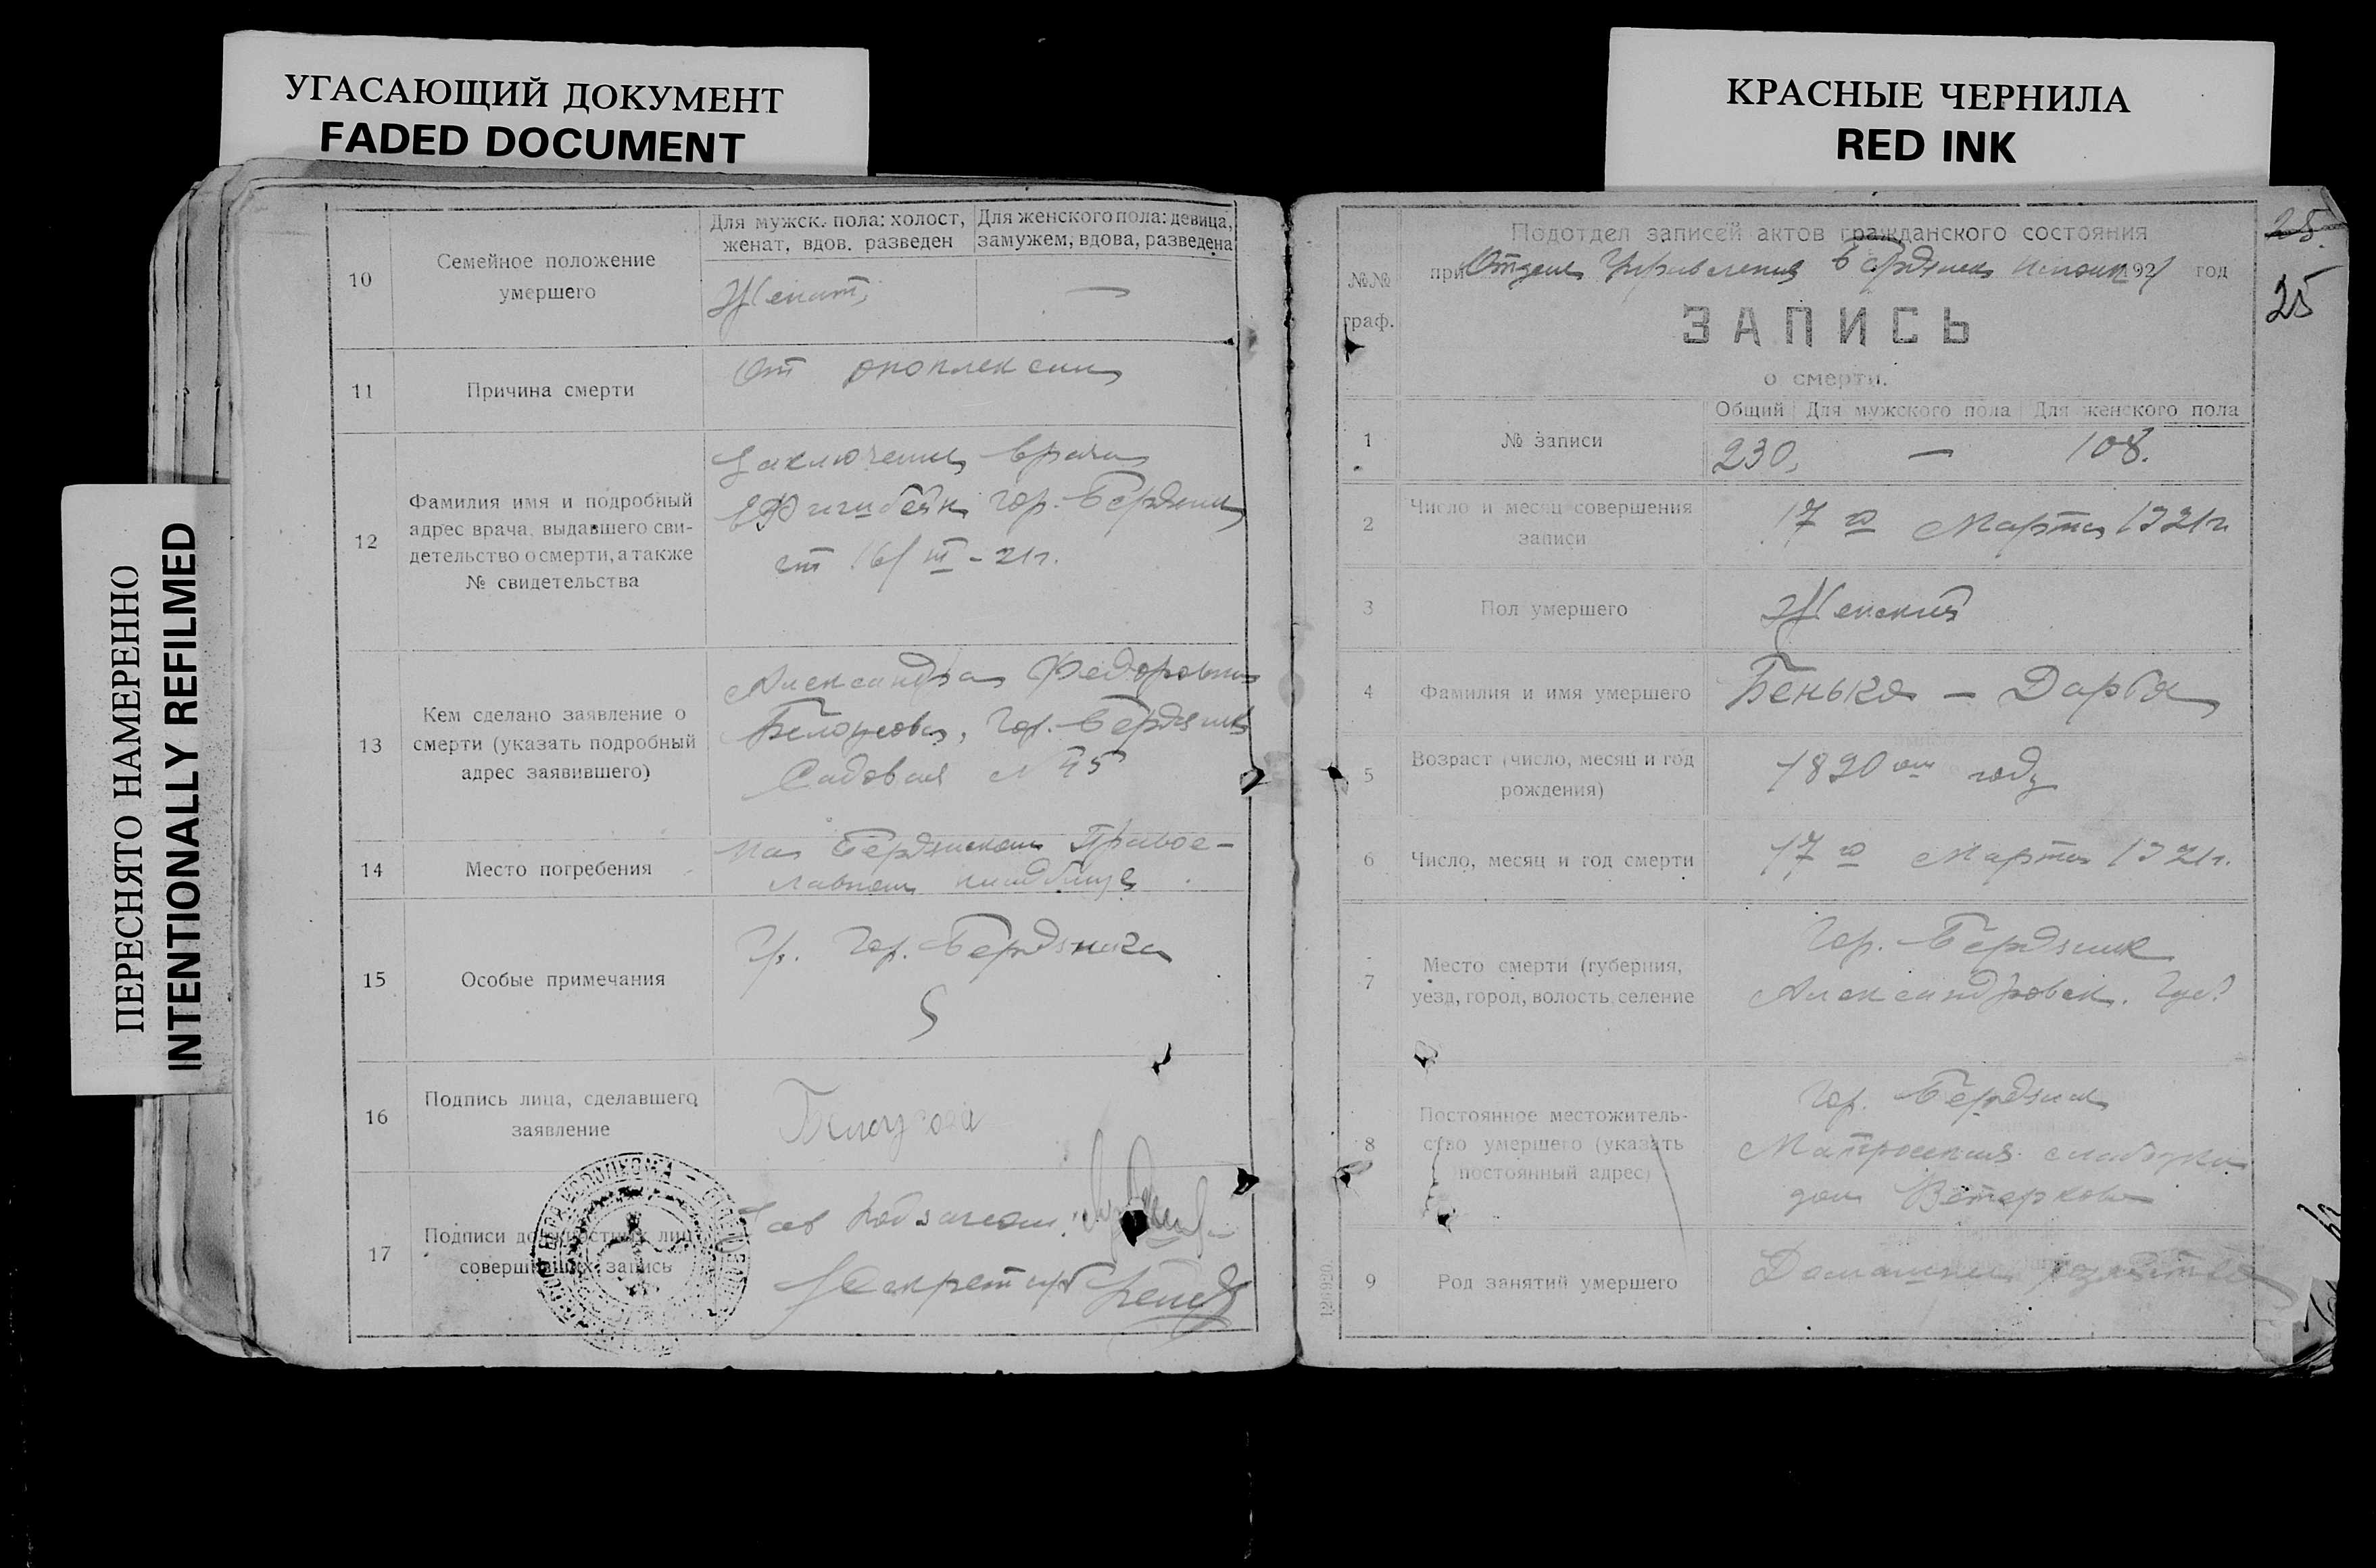 УГАСАЮЩИЙ ДОКУМЕНТ
FADED DOCUMENT
КРАСНЫЕ ЧЕРНИЛА
RED INK
ПЕРЕСНЯТО НАМЕРЕННО
INTENTIONALLY REFILMED
10
Семейное положение
умершего
Для мужск. пола: холост,
женат, вдов. разведен
Для женского пола: девица,
замужем, вдова, разведена
Женат,
—
11
Причина смерти
От
12
Фамилия имя и подробный
адрес врача, выдавшего сви-
детельство о смерти, а также
№ свидетельства
Заключение врача
гор. Бердянск
от 16/III-21г.
13
Кем сделано заявление о
смерти (указать подробный
адрес заявившего)
Александра Федоровна
Белоусова, гор. Бердянск
Садовая №45
14
Место погребения
На Бердянском Правос-
лавном кладбище
15
Особые примечания
Гр. гор. Бердянска
16
Подпись лица, сделавшего
заявление
Белоусова
17
Подписи должностных лиц
совершивших запись
Зав Подзагсом
Секретарь
25.
25
Подотдел записей актов гражданского состояния
№№
граф.
при Отделе Управления Бердянск 1921 год
ЗАПИСЬ
о смерти.
1
№ записи
Общий
Для мужского пола
Для женского пола
230,
—
108.
2
Число и месяц совершения
записи
17го Марта 1921г
3
Пол умершего
Женский
4
Фамилия и имя умершего
Бенька — Дарья
5
Возраст (число, месяц и год
рождения)
1820 году
6
Число, месяц и год смерти
17го Марта 1921г.
7
Место смерти (губерния,
уезд, город, волость, селение
Гор. Бердянск
Александровск. Губ.
8
Постоянное местожитель-
ство умершего (указать
постоянный адрес)
Гор. Бердянск
Матросская слободка
дом Ветеркова
9
Род занятий умершего
Домашнее хозяйство